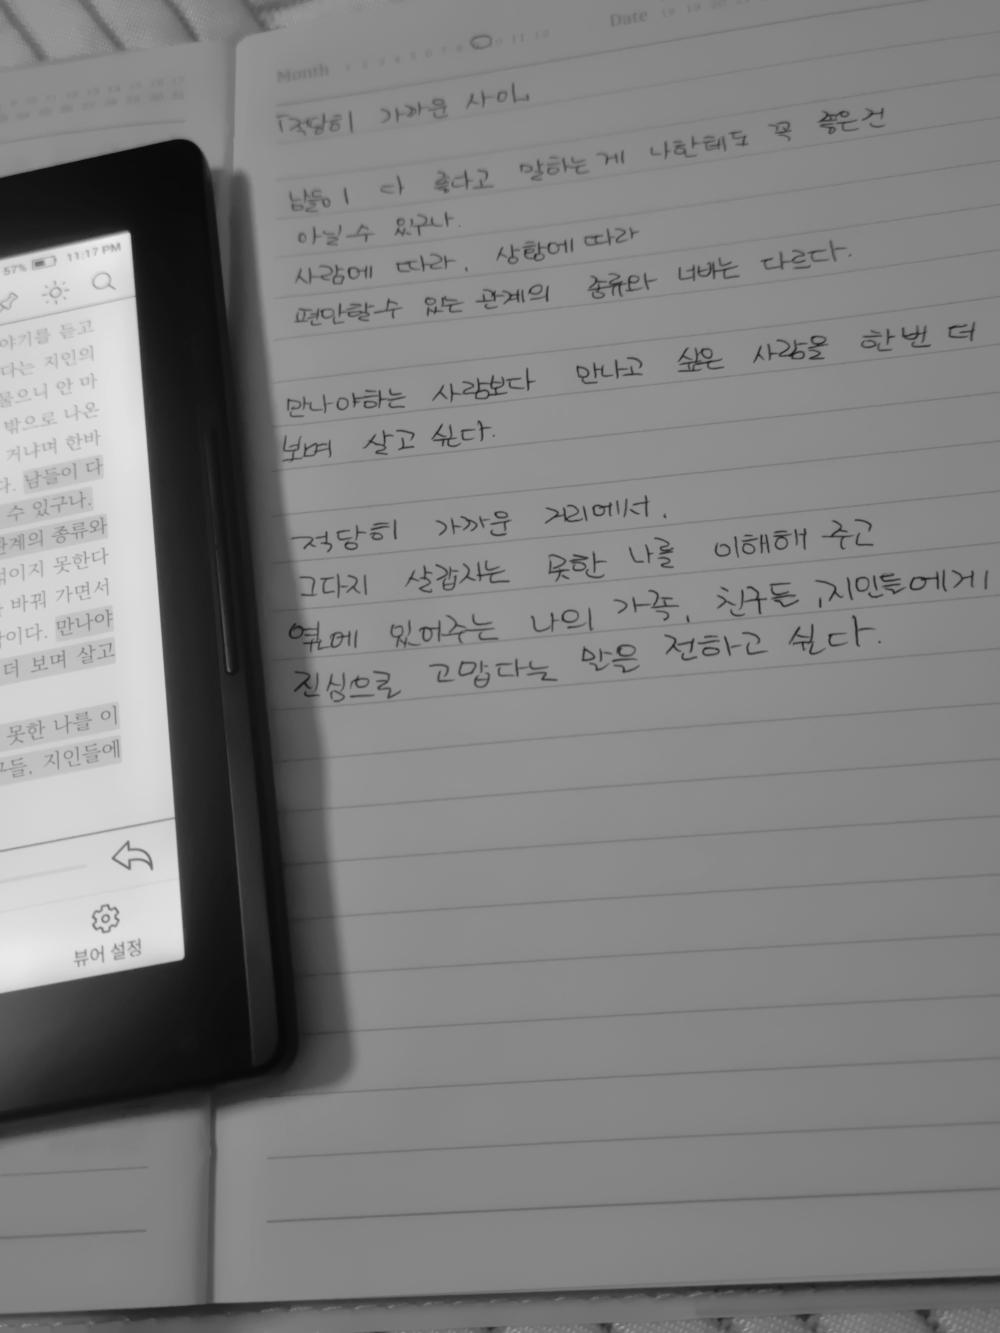 57% 11:17 PM
야기를 듣고
다는 지인의
물으니 안 마
밖으로 나온
거냐며 한바
다. 남들이 다
수 있구나.
관계의 종류와
이지 못한다
바꿔 가면서
이다. 만나야
더 보며 살고
못한 나를 이
구들, 지인들에
뷰어 설정
Month 1 2 3 4 5 6 7 8 9 10 11 12 Date 18 19 20
「적당히 가까운 사이」
남들이 다 좋다고 말하는게 나한테도 꼭 좋은건
아닐수 있구나.
사람에 따라, 상황에 따라
편안할수 있는 관계의 종류와 너비는 다르다.
만나야하는 사람보다 만나고 싶은 사람을 한번 더
보며 살고 싶다.
적당히 가까운 거리에서,
그다지 살갑지는 못한 나를 이해해 주고
옆에 있어주는 나의 가족, 친구들, 지인들에게
진심으로 고맙다는 말을 전하고 싶다.